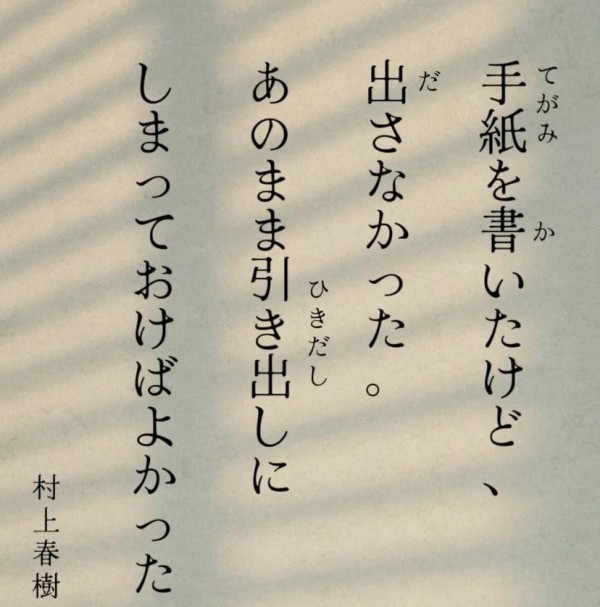 手紙を書いたけど、
てがみ か
出さなかった。
だ
あのまま引き出しに
ひきだし
しまっておけばよかった
村上春樹